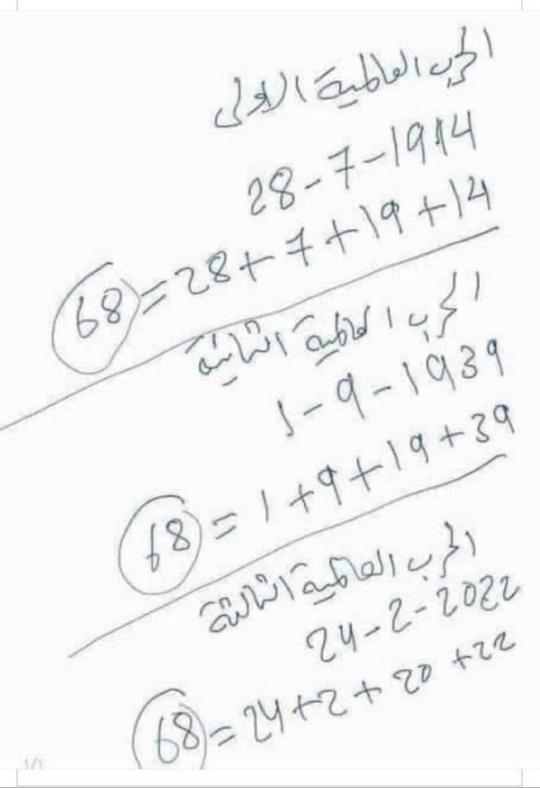 الحرب العالمية الاولى
28-7-1914
68=28+7+19+14
الحرب العالمية الثانية
1-9-1939
68=1+9+19+39
الحرب العالمية الثالثة
24-2-2022
68=24+2+20+22